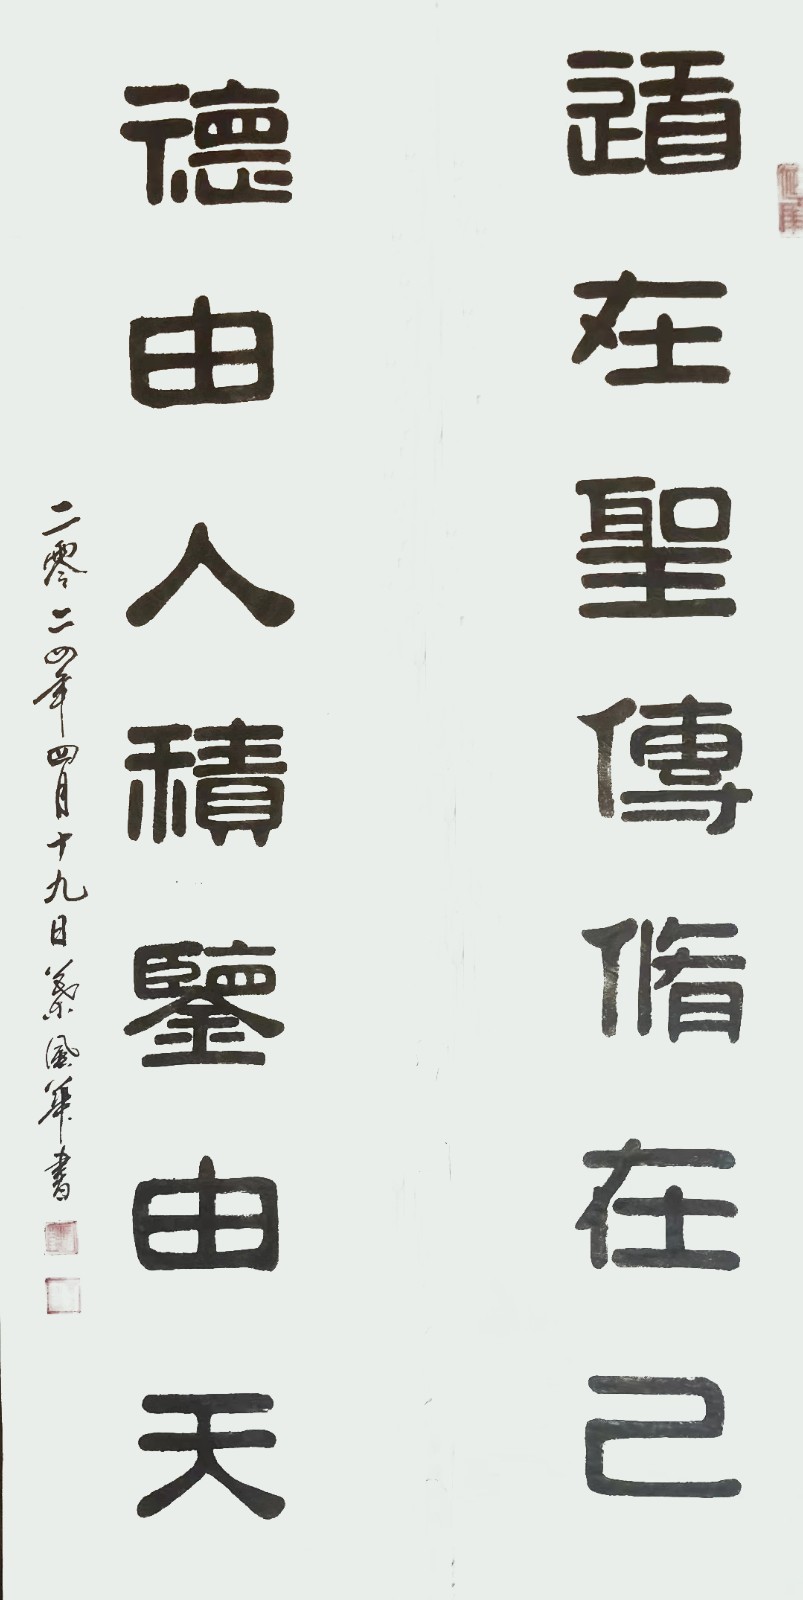 道在聖傳脩在己
德由人積鑒由天
二零二四年四月十九日葉風華書